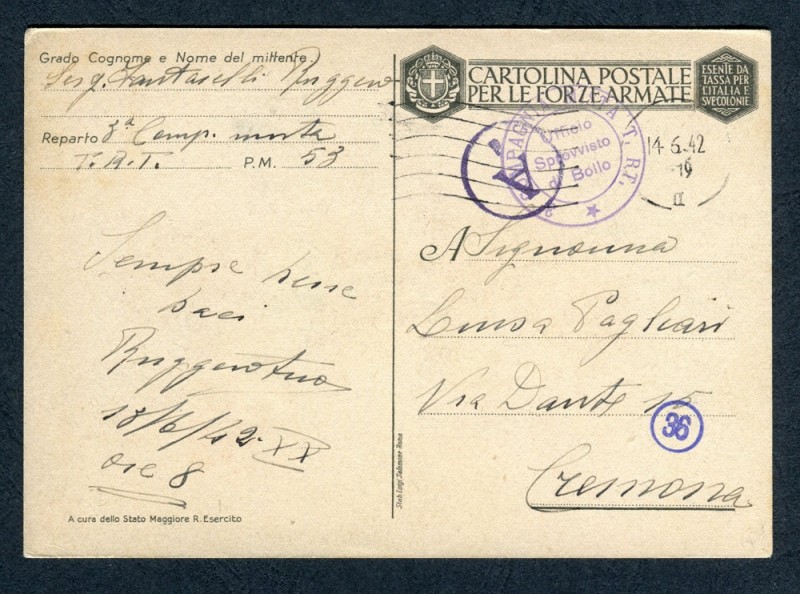 Grado Cognome e Nome del mittente
Serg. Fantaselli Ruggero
Reparto 3ª Comp. mista
T.R.T. P.M. 53
Sempre bene
baci
Ruggero tuo
18/6/42 XX
ore 8
A cura dello Stato Maggiore R. Esercito
Stab. Luigi Salomone Roma
CARTOLINA POSTALE
PER LE FORZE ARMATE
ESENTE DA
TASSA PER
L'ITALIA E
SVE COLONIE
Ufficio
Sprovvisto
di Bollo
T. RT.
14.6.42
19
II
A Signorina
Luisa Pagliari
Via Dante 15
36
Cremona